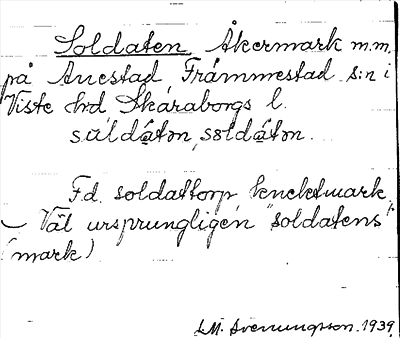 Soldaten Åkermark m.m.
på Anestad Främmestad s:n i
Viste hrd Skaraborgs l.
sáldátən, səldátən.
F.d. soldattorp, knektmark.
– Väl ursprungligen "soldatens"
(mark)
S.M. Svenungsson. 1939